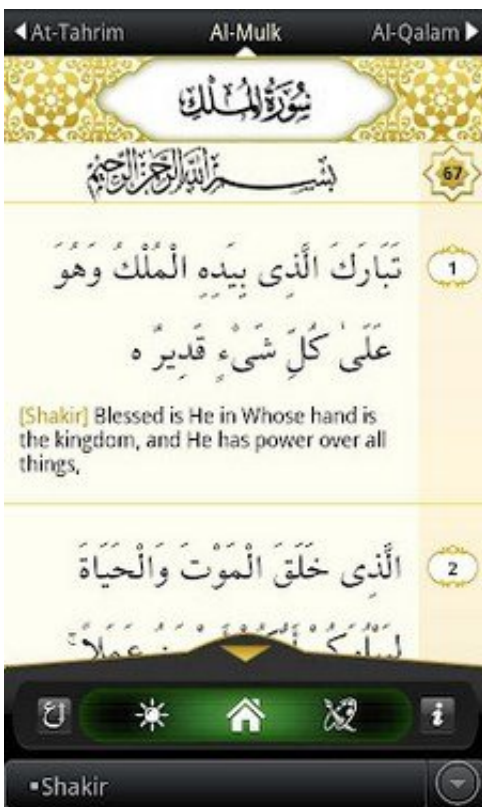 At-Tahrim Al-Mulk Al-Qalam
سُورَةُ الْمُلْكِ
بِسْمِ اللَّهِ الرَّحْمَٰنِ الرَّحِيمِ 67
تَبَارَكَ الَّذِى بِيَدِهِ الْمُلْكُ وَهُوَ 1
عَلَىٰ كُلِّ شَىْءٍ قَدِيرٌ ه
[Shakir] Blessed is He in Whose hand is
the kingdom, and He has power over all
things,
الَّذِى خَلَقَ الْمَوْتَ وَالْحَيَاةَ 2
لِيَبْلُوَكُمْ أَيُّكُمْ أَحْسَنُ عَمَلًا ۚ
i
Shakir